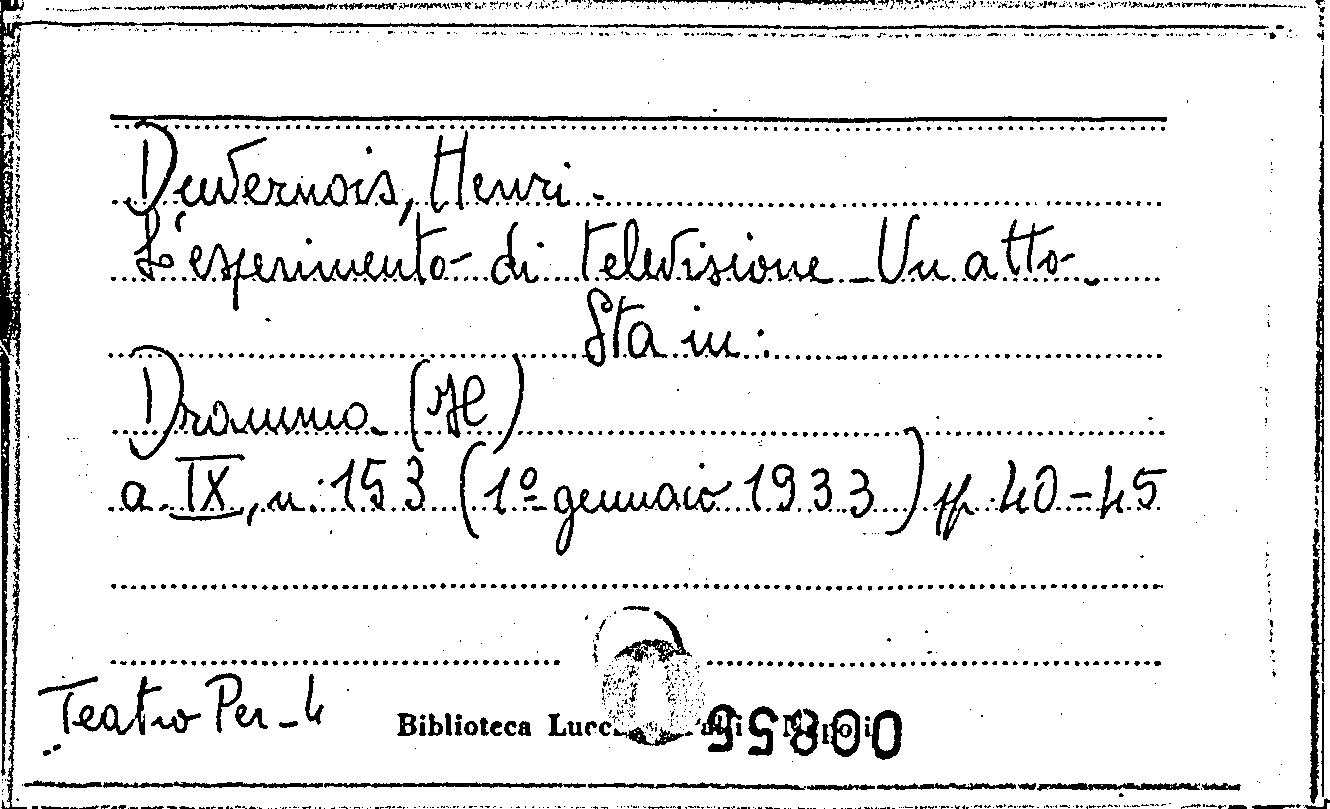 Duvernois, Henri.
L'esperimento di televisione - Un atto.
Sta in:
Dramma. (Il)
a. IX, n. 153 (1º gennaio 1933) pp. 40-45
Teatro Per - 4
Biblioteca